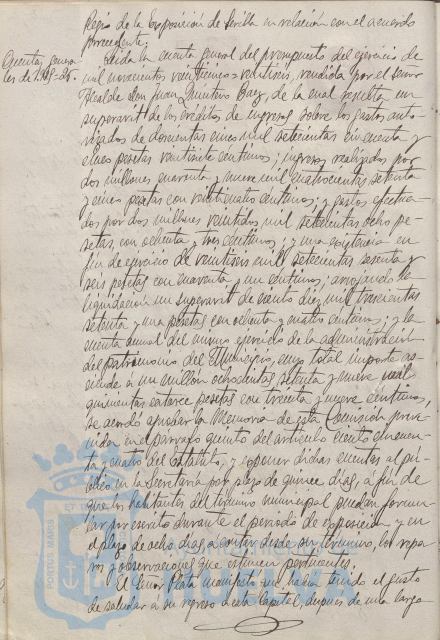 Regio de la Exposición de Sevilla en relación con el acuerdo
precedente.
Cuentas genera-
les de 1925-26.
Leida la cuenta general del presupuesto del ejercicio de
mil novecientos veinticinco=veintiseis, rendida por el señor
Alcalde Don Juan Quintero Baez, de la cual resulta un
superavit de los créditos de ingresos sobre los gastos auto-
rizados de doscientas cinco mil setecientas cincuenta y
cinco pesetas veintisiete céntimos; ingresos realizados por
dos millones cuarenta y nueve mil cuatrocientas setenta
y cinco pesetas con veinticuatro céntimos; y gastos efectua-
dos por dos millones veintidos mil setecientas ocho pe-
setas, con ochenta y tres céntimos; y una existencia en
fin de ejercicio de veintiseis mil setecientas sesenta y
seis pesetas con cuarenta y un céntimos; arrojando la
liquidación un superavit de ciento diez mil trescientas
setenta y una pesetas con ochenta y cuatro céntimos; y la
cuenta anual del mismo ejercicio de la administración
del patrimonio del Municipio, cuyo total importe as-
ciende a un millón ochocientas setenta y nueve mil
quinientas catorce pesetas con treinta y nueve céntimos,
se acordó aprobar la Memoria de esta Comisión preve-
nida en el parrafo quinto del articulo ciento cincuen-
ta y cuatro del Estatuto, y exponer dichas cuentas al pú-
blico en la Secretaria por plazo de quince dias, a fin de
que los habitantes del termino municipal puedan formu-
lar por escrito durante el periodo de exposición, y en
el plazo de ocho dias a contar desde su termino, los repa-
ros y observaciones que estimen pertinentes.
El Señor Plata manifestó que habia tenido el gusto
de saludar a su regreso a esta Capital, despues de una larga
PORTUS MARIS